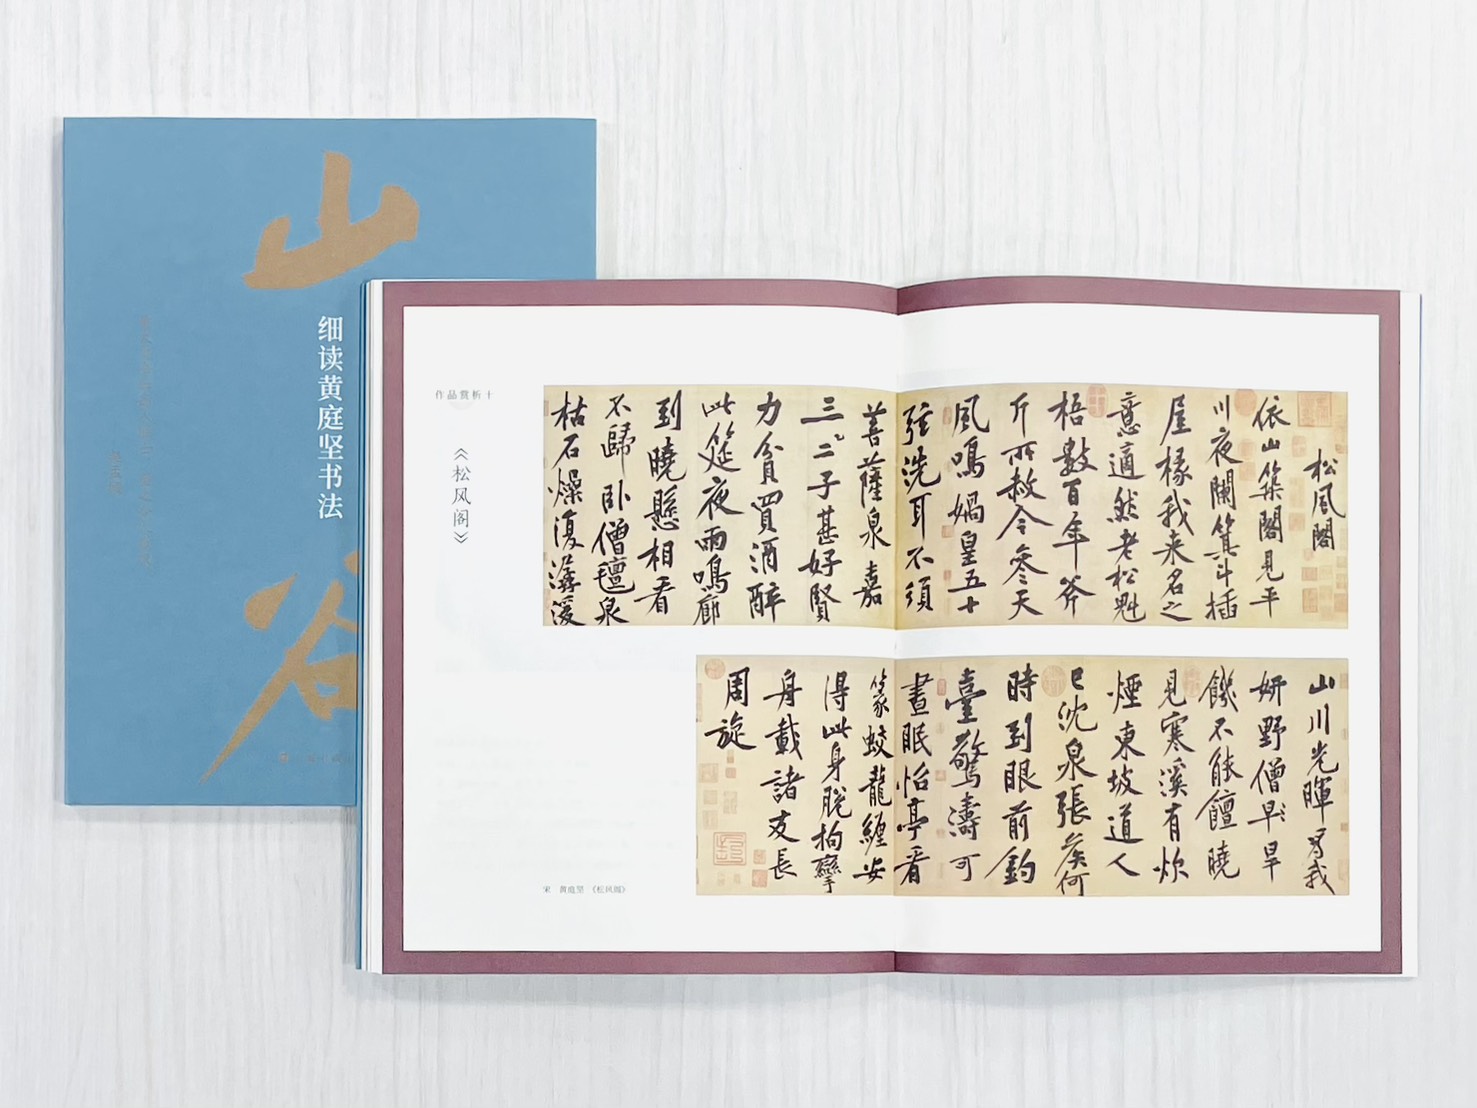 山
谷
细读黄庭坚书法
作品赏析十
《松风阁》
松風閣
依山築閣見平
川夜闌箕斗插
屋椽我来名之
意適然老松魁
梧數百年斧
斤所赦今參天
風鳴媧皇五十
弦洗耳不須
菩薩泉嘉
三二子甚好賢
力貧買酒醉
此筵夜雨鳴廊
到曉懸相看
不歸臥僧氈泉
枯石燥復潺湲
山川光暉爲我
妍野僧早旱
饑不能饘曉
見寒溪有炊
煙東坡道人
已沈泉張矦何
時到眼前釣
臺驚濤可
晝眠怡亭看
篆蛟龍纏安
得此身脱拘攣
舟載諸友長
周旋
宋 黄庭坚 《松风阁》